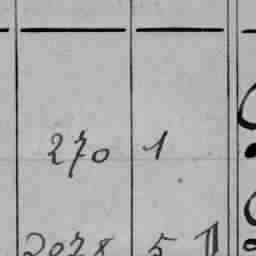 270 1
2078 5